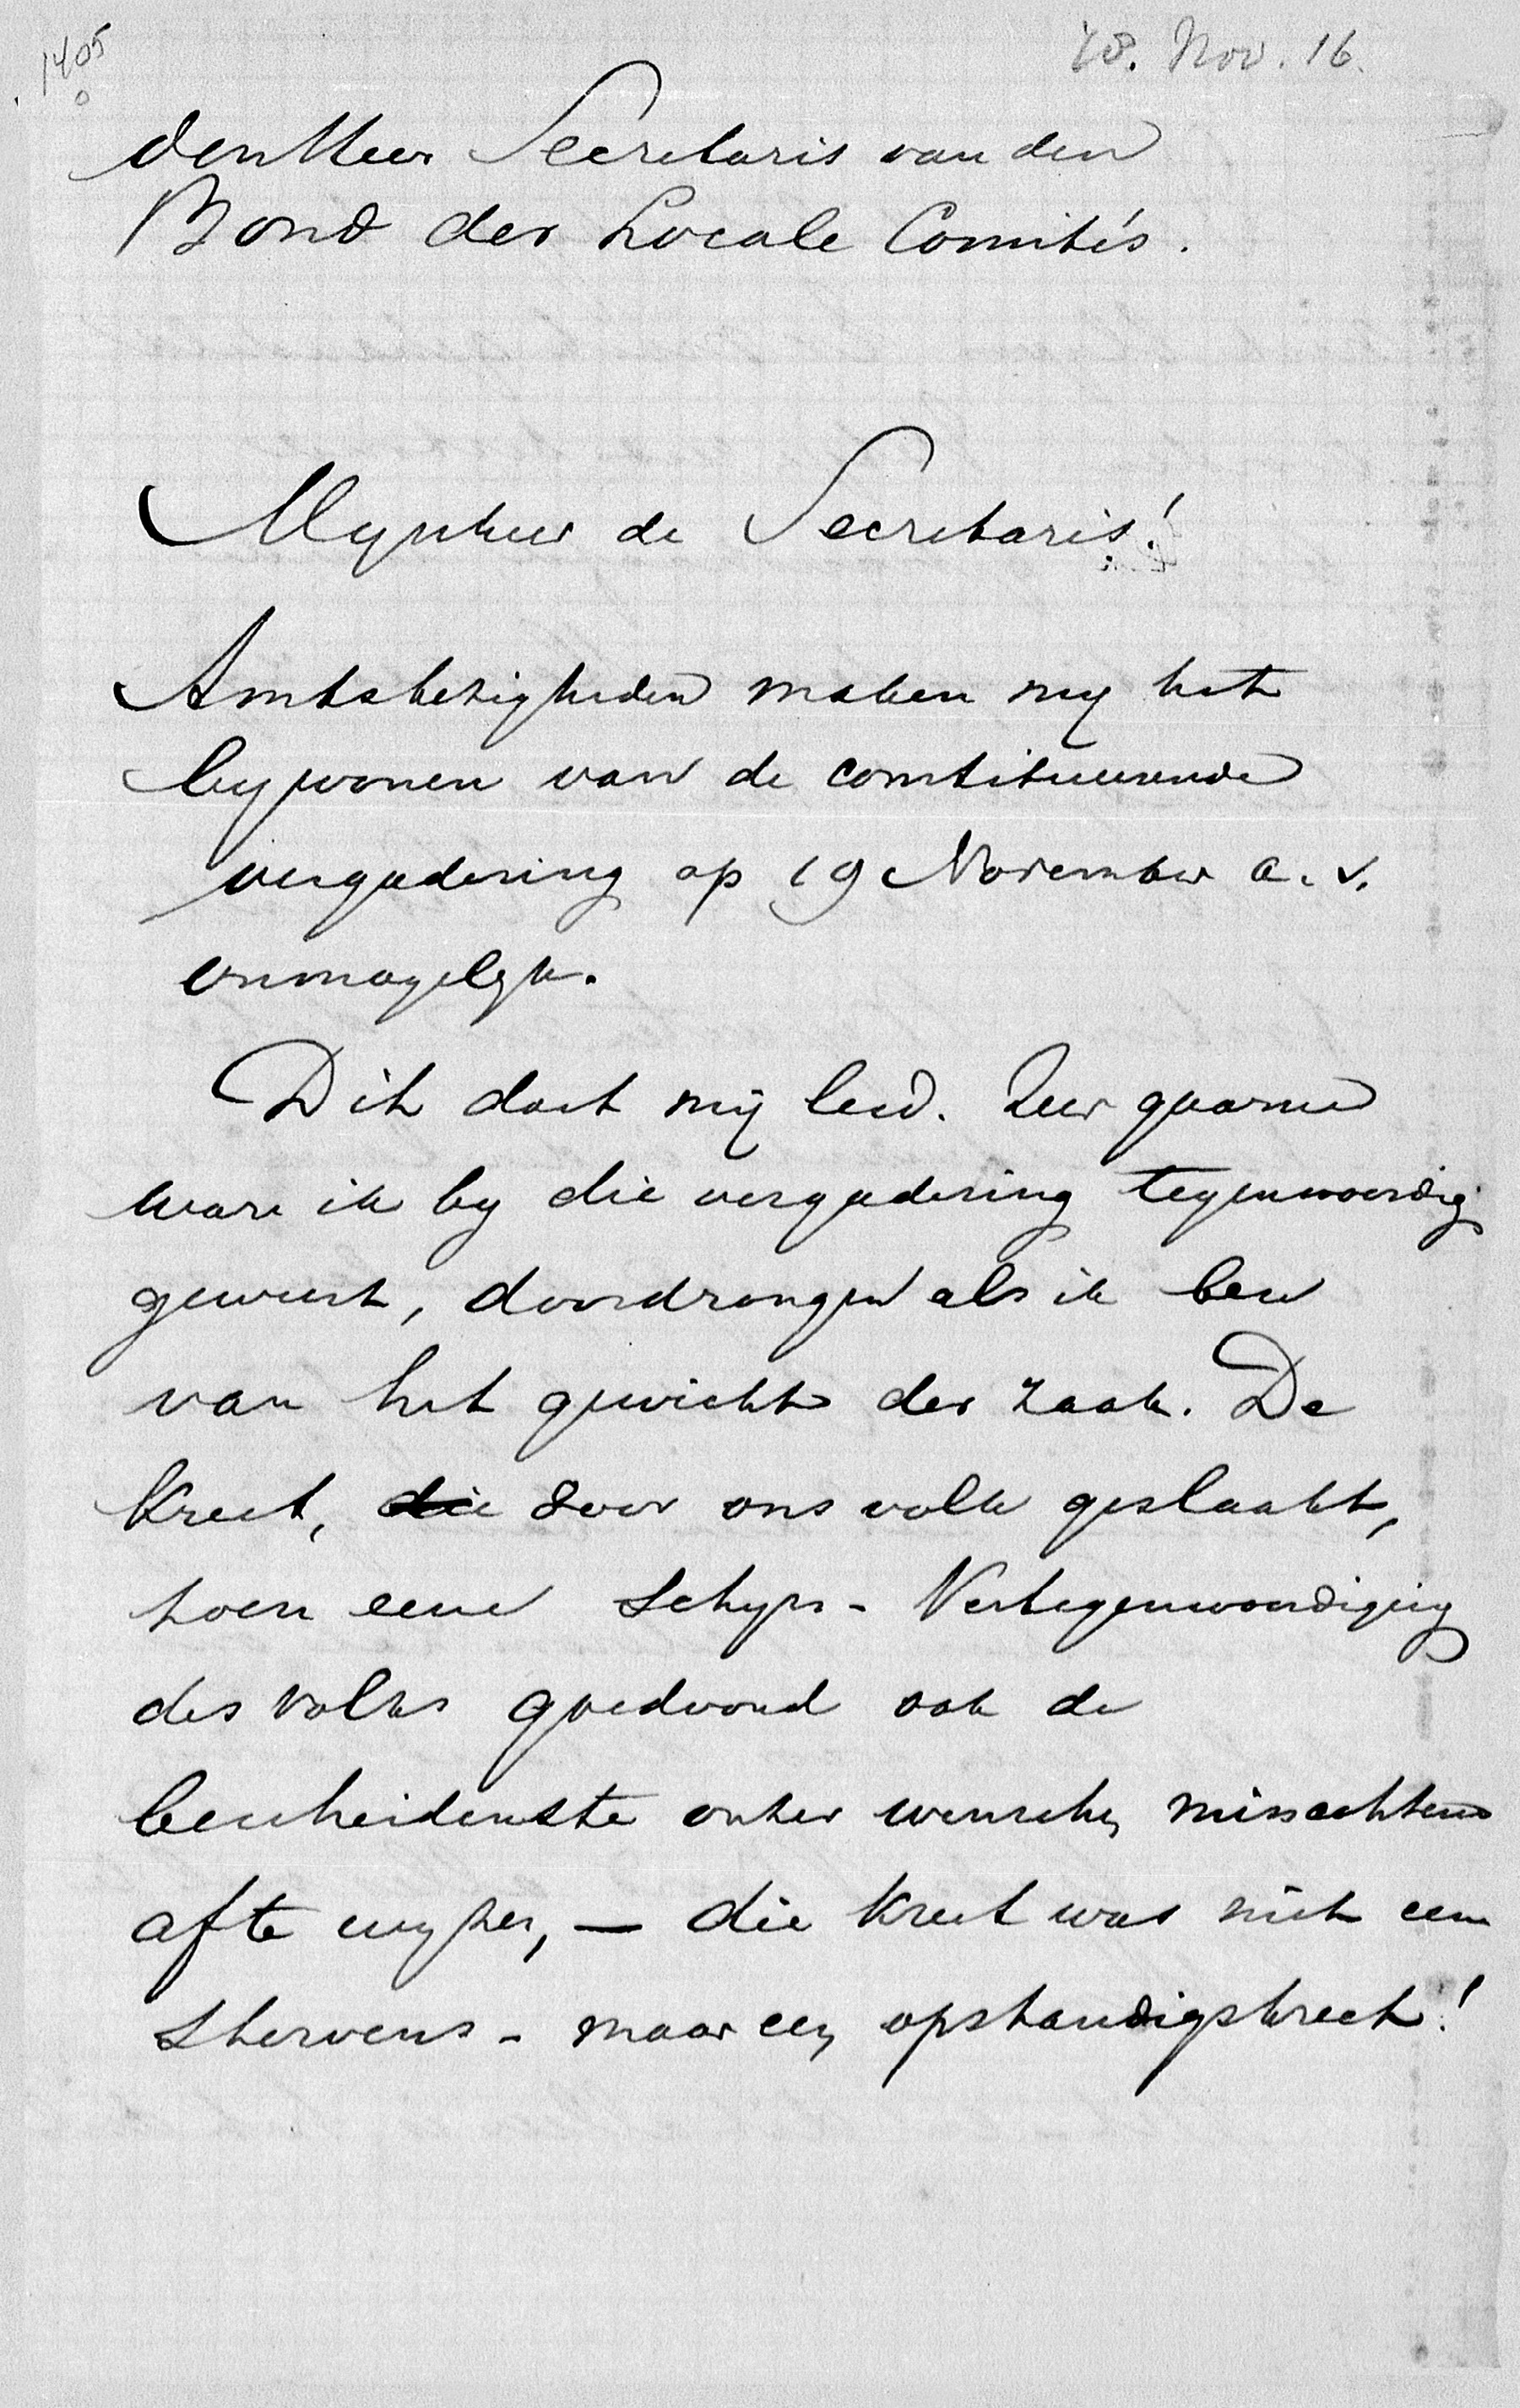 1405
18. Nov. 16.
den Heer Secretaris van den
Bond der Locale Comités.
Mynheer de Secretaris!
Ambtsbezigheden maken my het
bywonen van de constitueerende
vergadering op 19 November a. s.
onmogelyk.
Dit doet mij leed. Zeer gaarne
ware ik by die vergadering tegenwoordig
geweest, doordrongen als ik ben
van het gewicht der zaak. De
Kreet, die door ons volk geslaakt,
toen eene Schyn-Vertegenwoordiging
des volks goedvond ook de
bescheidenste onzer wenschen missachtend
af te wyzen, — die Kreet was niet een
stervens- maar een opstandigskreet!